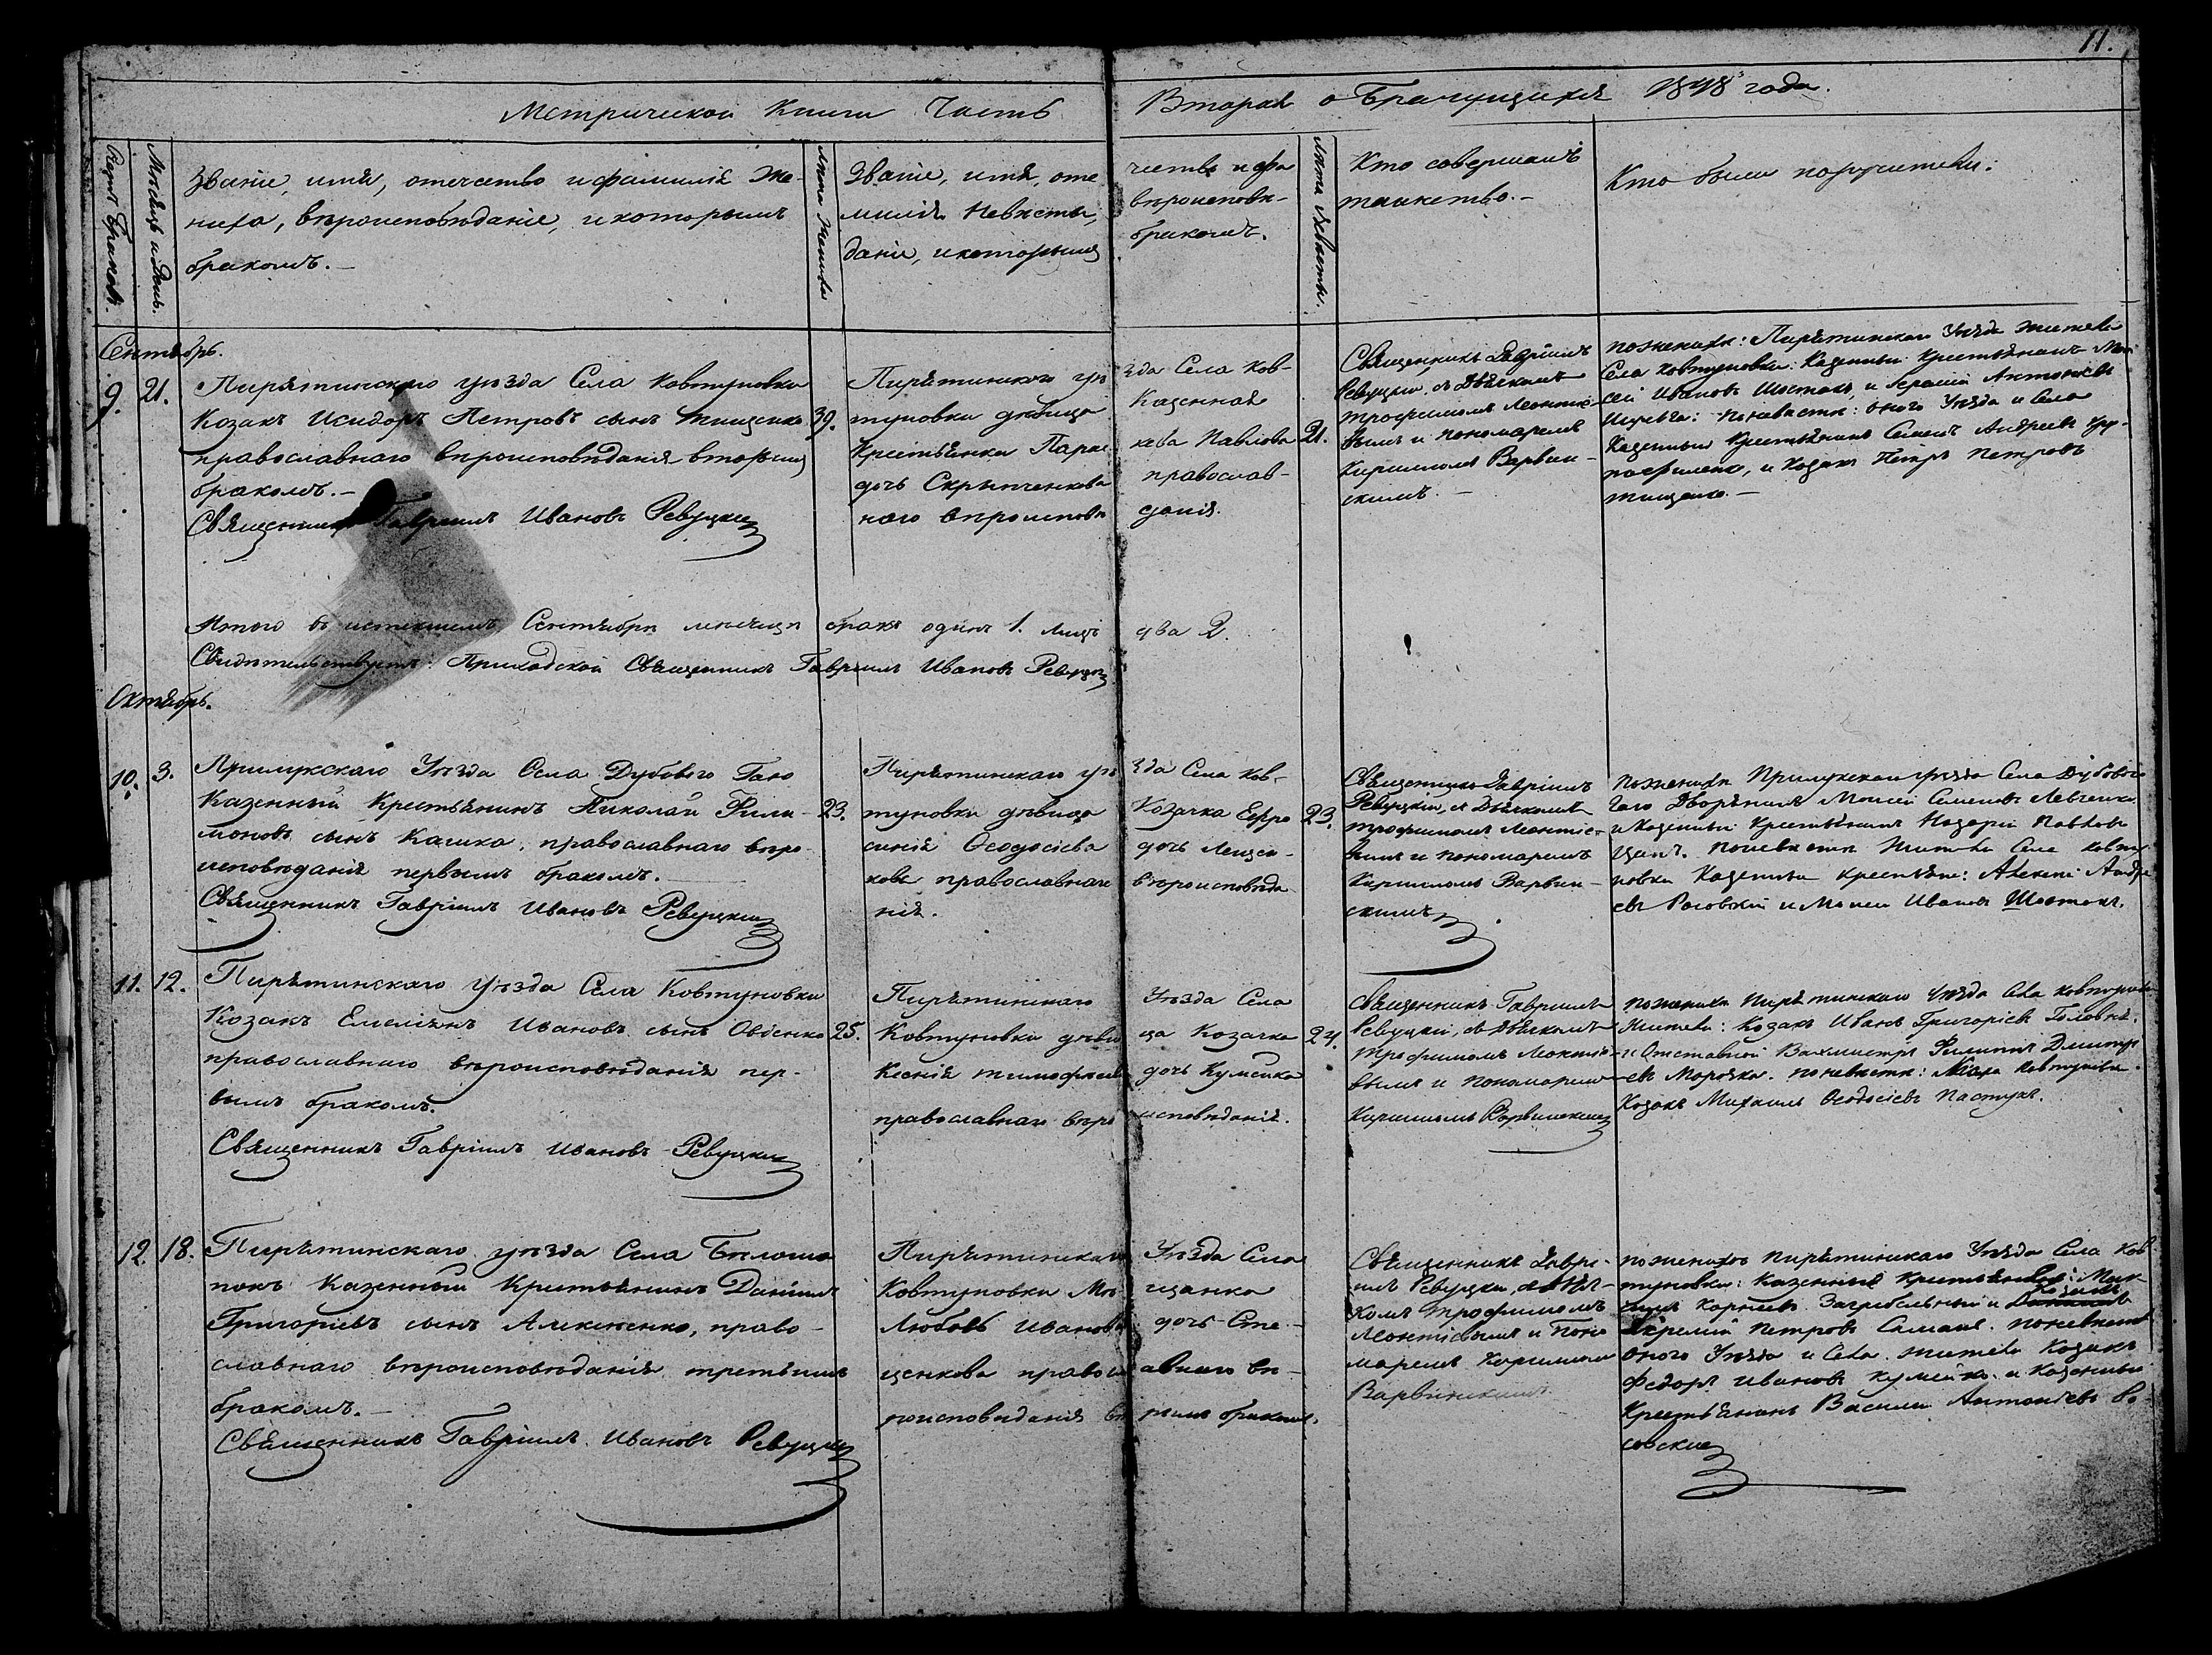 11.
Метрической Книги Часть Вторая о Бракущихся 1848 года.
Счетъ Браковъ.
Мѣсяцъ и День.
Званіе, имя, отечество и фамилія Же-
ниха, вѣроисповѣданіе, и которымъ
бракомъ.-
Лѣта Жениха
Званіе, имя, оте чество и фа
милія Невѣсты, вѣроисповѣ-
даніе, и которымъ бракомъ.
Лѣта Невѣсты.
Кто совершалъ
таинство.-
Кто были поручители:
Сентябрь.
9. 21.
Пирятинскаго уѣзда Села Ковтуновки
Козакъ Исидоръ Петровъ сынъ Тищенко
православнаго вѣроисповѣданія вторымъ
бракомъ.-
Священникъ Гавріилъ Ивановъ Ревуцкій
39.
Пирятинскаго уѣ зда Села Ков-
туновки дѣвица Казенная
Крестьянка Парас кева Павлова
дочь Скрыпченкова православ-
наго вѣроисповѣ данія.
21.
Священникъ Гавріилъ
Ревуцкій, съ Дьячкомъ
Трофимомъ Леонтіе-
вымъ и пономаремъ
Кириломъ Варвин-
скимъ.-
по женихѣ: Пирятинскаго Уѣзда жители
Села Ковтуновки: Казенный Крестьянинъ Мои
сей Ивановъ Шостакъ, и Герасій Антоніевъ
по невѣстѣ: оного Уѣзда и Села
Казенный Крестьянинъ Семенъ Андреевъ
и Козакъ Петръ Петровъ
Тищенко.-
Итого въ истекшемъ Сентябрѣ мѣсяцѣ бракъ одинъ 1. лицъ два 2.
Свидѣтельствуетъ: Приходской Священникъ Гавріилъ Ивановъ Ревуцкій
Октябрь.
10. 3.
Прилукскаго Уѣзда Села Дубового Гаю
Казенный Крестьянинъ Николай Фили-
моновъ сынъ Кашка, православнаго вѣро-
исповѣданія первымъ бракомъ.
Священникъ Гавріилъ Ивановъ Ревуцкій
23.
Пирятинскаго уѣ зда Села Ков-
туновки дѣвица Козачка Ефро
синія Ѳеодосіева дочь Лещен-
кова православнаго вѣроисповѣда
нія.
23.
Священникъ Гавріилъ
Ревуцкій, съ Дьячкомъ
Трофимомъ Леонтіе-
вымъ и пономаремъ
Кириломъ Варвин-
скимъ
по женихѣ Прилукскаго уѣзда Села Дубового
Гаю Дворянинъ Моисей Семеновъ Левченко
и Казенный Крестьянинъ Назарій Павловъ
по невѣстѣ жители Села Ковту
новки Казенныи крестьяне: Алексій Андре
евъ Росовскій и Моисей Ивановъ Шостакъ.
11. 12.
Пирятинскаго уѣзда Села Ковтуновки
Козакъ Емеліянъ Ивановъ сынъ Овсіенко
православнаго вѣроисповѣданія пер-
вымъ бракомъ.
Священникъ Гавріилъ Ивановъ Ревуцкій
25.
Пирятинскаго Уѣзда Села
Ковтуновки дѣви ца Козачка
Ксенія Тимофеева дочь Кумейка
православнаго вѣро исповѣданія.
24.
Священникъ Гавріилъ
Ревуцкій, съ Дьячкомъ
Трофимомъ Леонтіе-
вымъ и пономаремъ
Кириломъ Варвинскимъ
по женихѣ Пирятинскаго Уѣзда Села Ковтуновки
жители: Козакъ Иванъ Григоріевъ Головня.
и Отставной Вахмистръ Филиппъ Дмитрі
евъ Морозка. по невѣстѣ: Села Ковтуновки.
Козакъ Михаилъ Ѳеодосіевъ Пастухъ.
12. 18.
Пирятинскаго уѣзда Села Бѣлоша
покъ Казенный Крестьянинъ Даніилъ
Григоріевъ сынъ Алексіенко, право-
славнаго вѣроисповѣданія третьимъ
бракомъ.-
Священникъ Гавріилъ Ивановъ Ревуцкій
Пирятинскаго Уѣзда Села
Ковтуновки Мѣ щанка
Любовь Иванова дочь Сте-
ценкова правосл авнаго вѣ-
роисповѣданія вто рымъ бракомъ.
Священникъ Гаврі-
илъ Ревуцкій, съ Дьяч-
комъ Трофимомъ
Леонтіевымъ и Поно
маремъ Кириломъ
Варвинскимъ
по женихѣ Пирятинскаго Уѣзда Села Ков
туновки: Казенный Крестьянинъ: Мак-
симъ Корніевъ Загребельный и Козакъ
Іеремій Петровъ Саман. по невѣстѣ
оного Уѣзда и Села жители Козакъ
Федоръ Ивановъ Кумейко и Казенный
Крестьянинъ Василій Антоніевъ Ро
совскій